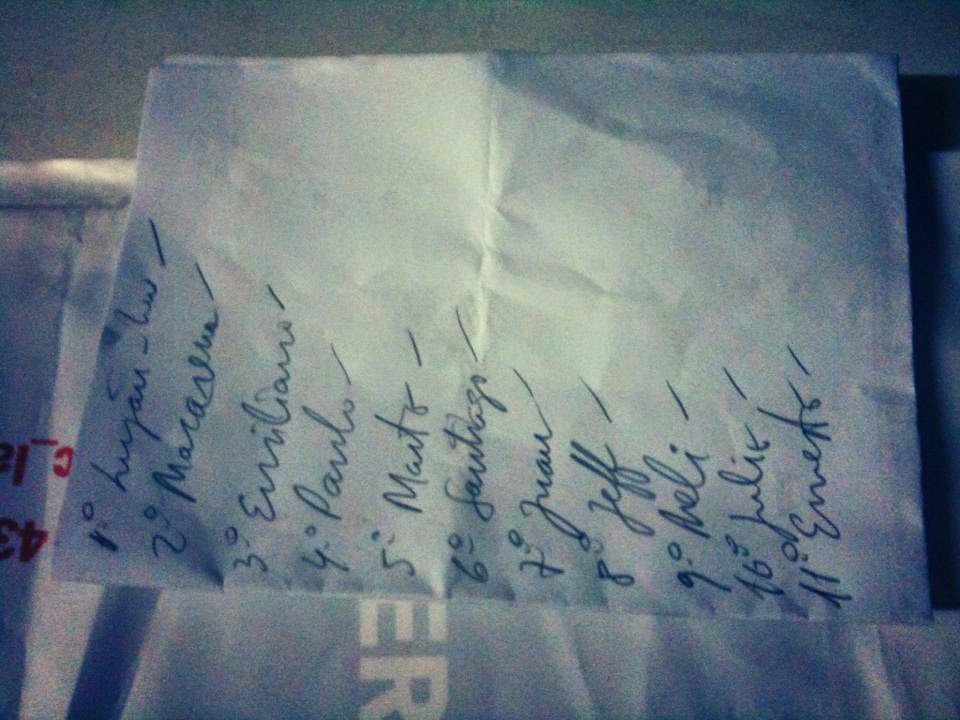 1.º Luján -
2º Macarena
3.º Emiliano
4.º Paulo
5.º Marta
6.º Santiago
7.º Juan
8º Jeff
9.º Meli
10º Julia
11º Ernesto
ER
c_la
43